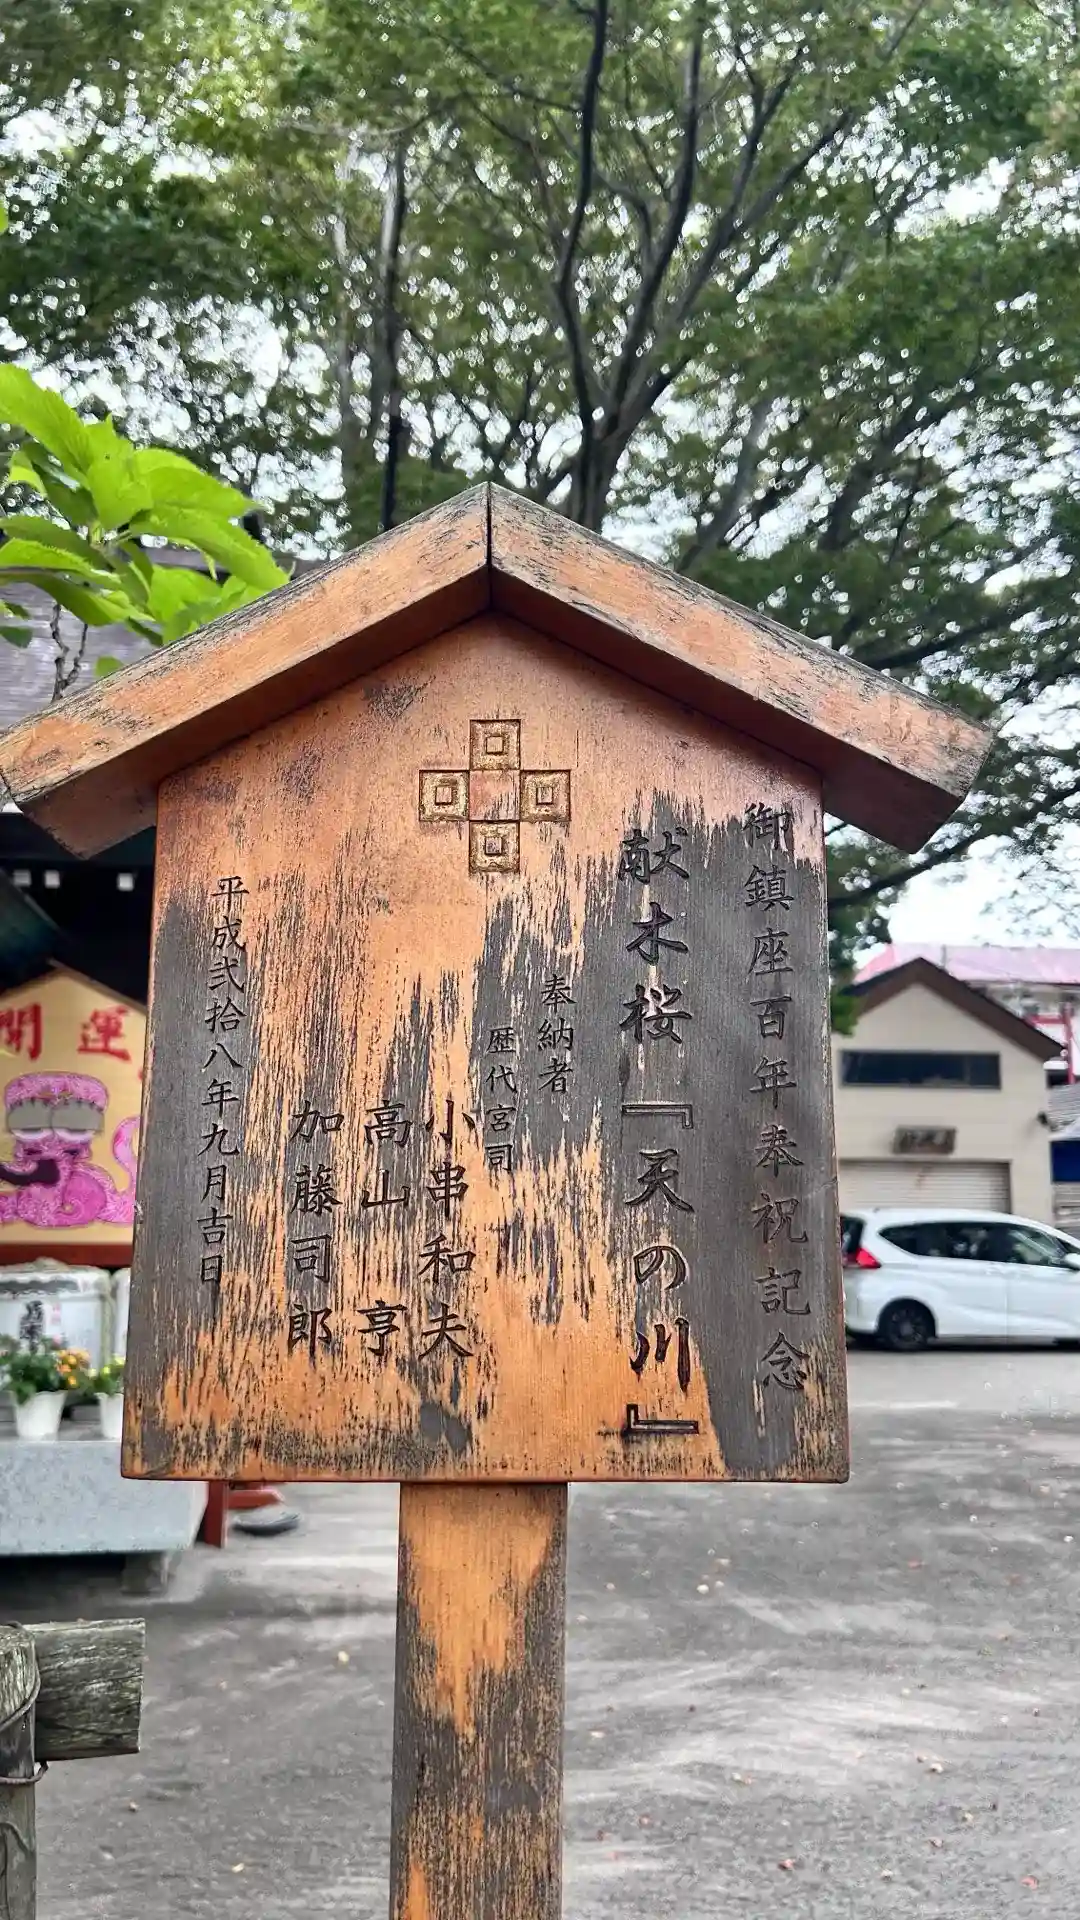 御鎮座百年奉祝記念
献木桜『天の川』
奉納者
歴代宮司
小串和夫
高山亨
加藤司郎
平成弐拾八年九月吉日
開運